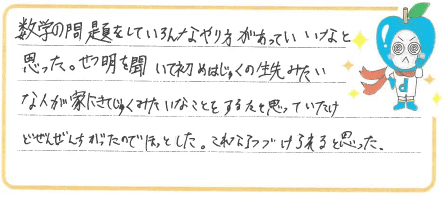 数学の問題をしていろんなやり方があっていいなと
思った。せつ明を聞いて初めはじゅくの先生みたい
な人が家にきてじゅくみたいなことをするんだと思っていたけ
どぜんぜんちがったのでほっとした。これならつづけられると思った。